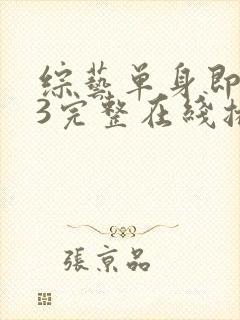 綜藝單身即
3完整在綫播
張京品